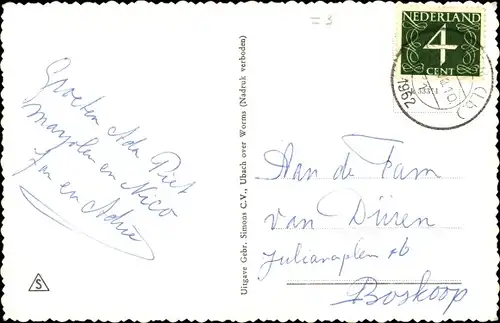 = 3
NEDERLAND
4
CENT
1962
(Lb)
Groeten Ada Piet
Marjolen en Nico
Jan en Adrie
Uitgave Gebr. Simons C.V., Ubach over Worms (Nadruk verboden)
Aan de Fam
van Düren
Julianaplein
Boskoop
S